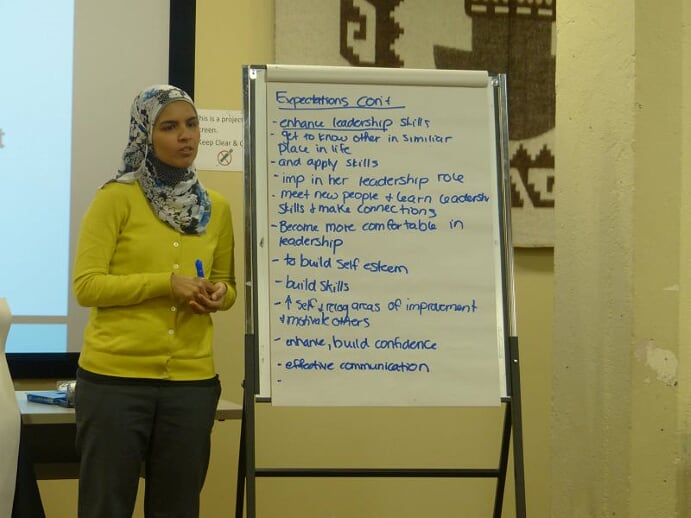 t
his is a project
creen.
Keep Clear & C
Expectations con't
- enhance leadership skills
- get to know other in similiar
place in life
- and apply skills
- imp in her leadership role
- meet new people & learn leadersh
skills & make connections
- Become more comfortable in
leadership
- to build self esteem
- build skills
- ↑ self & recog areas of improvement
& motivate others
- enhance, build confidence
- effective communication
-